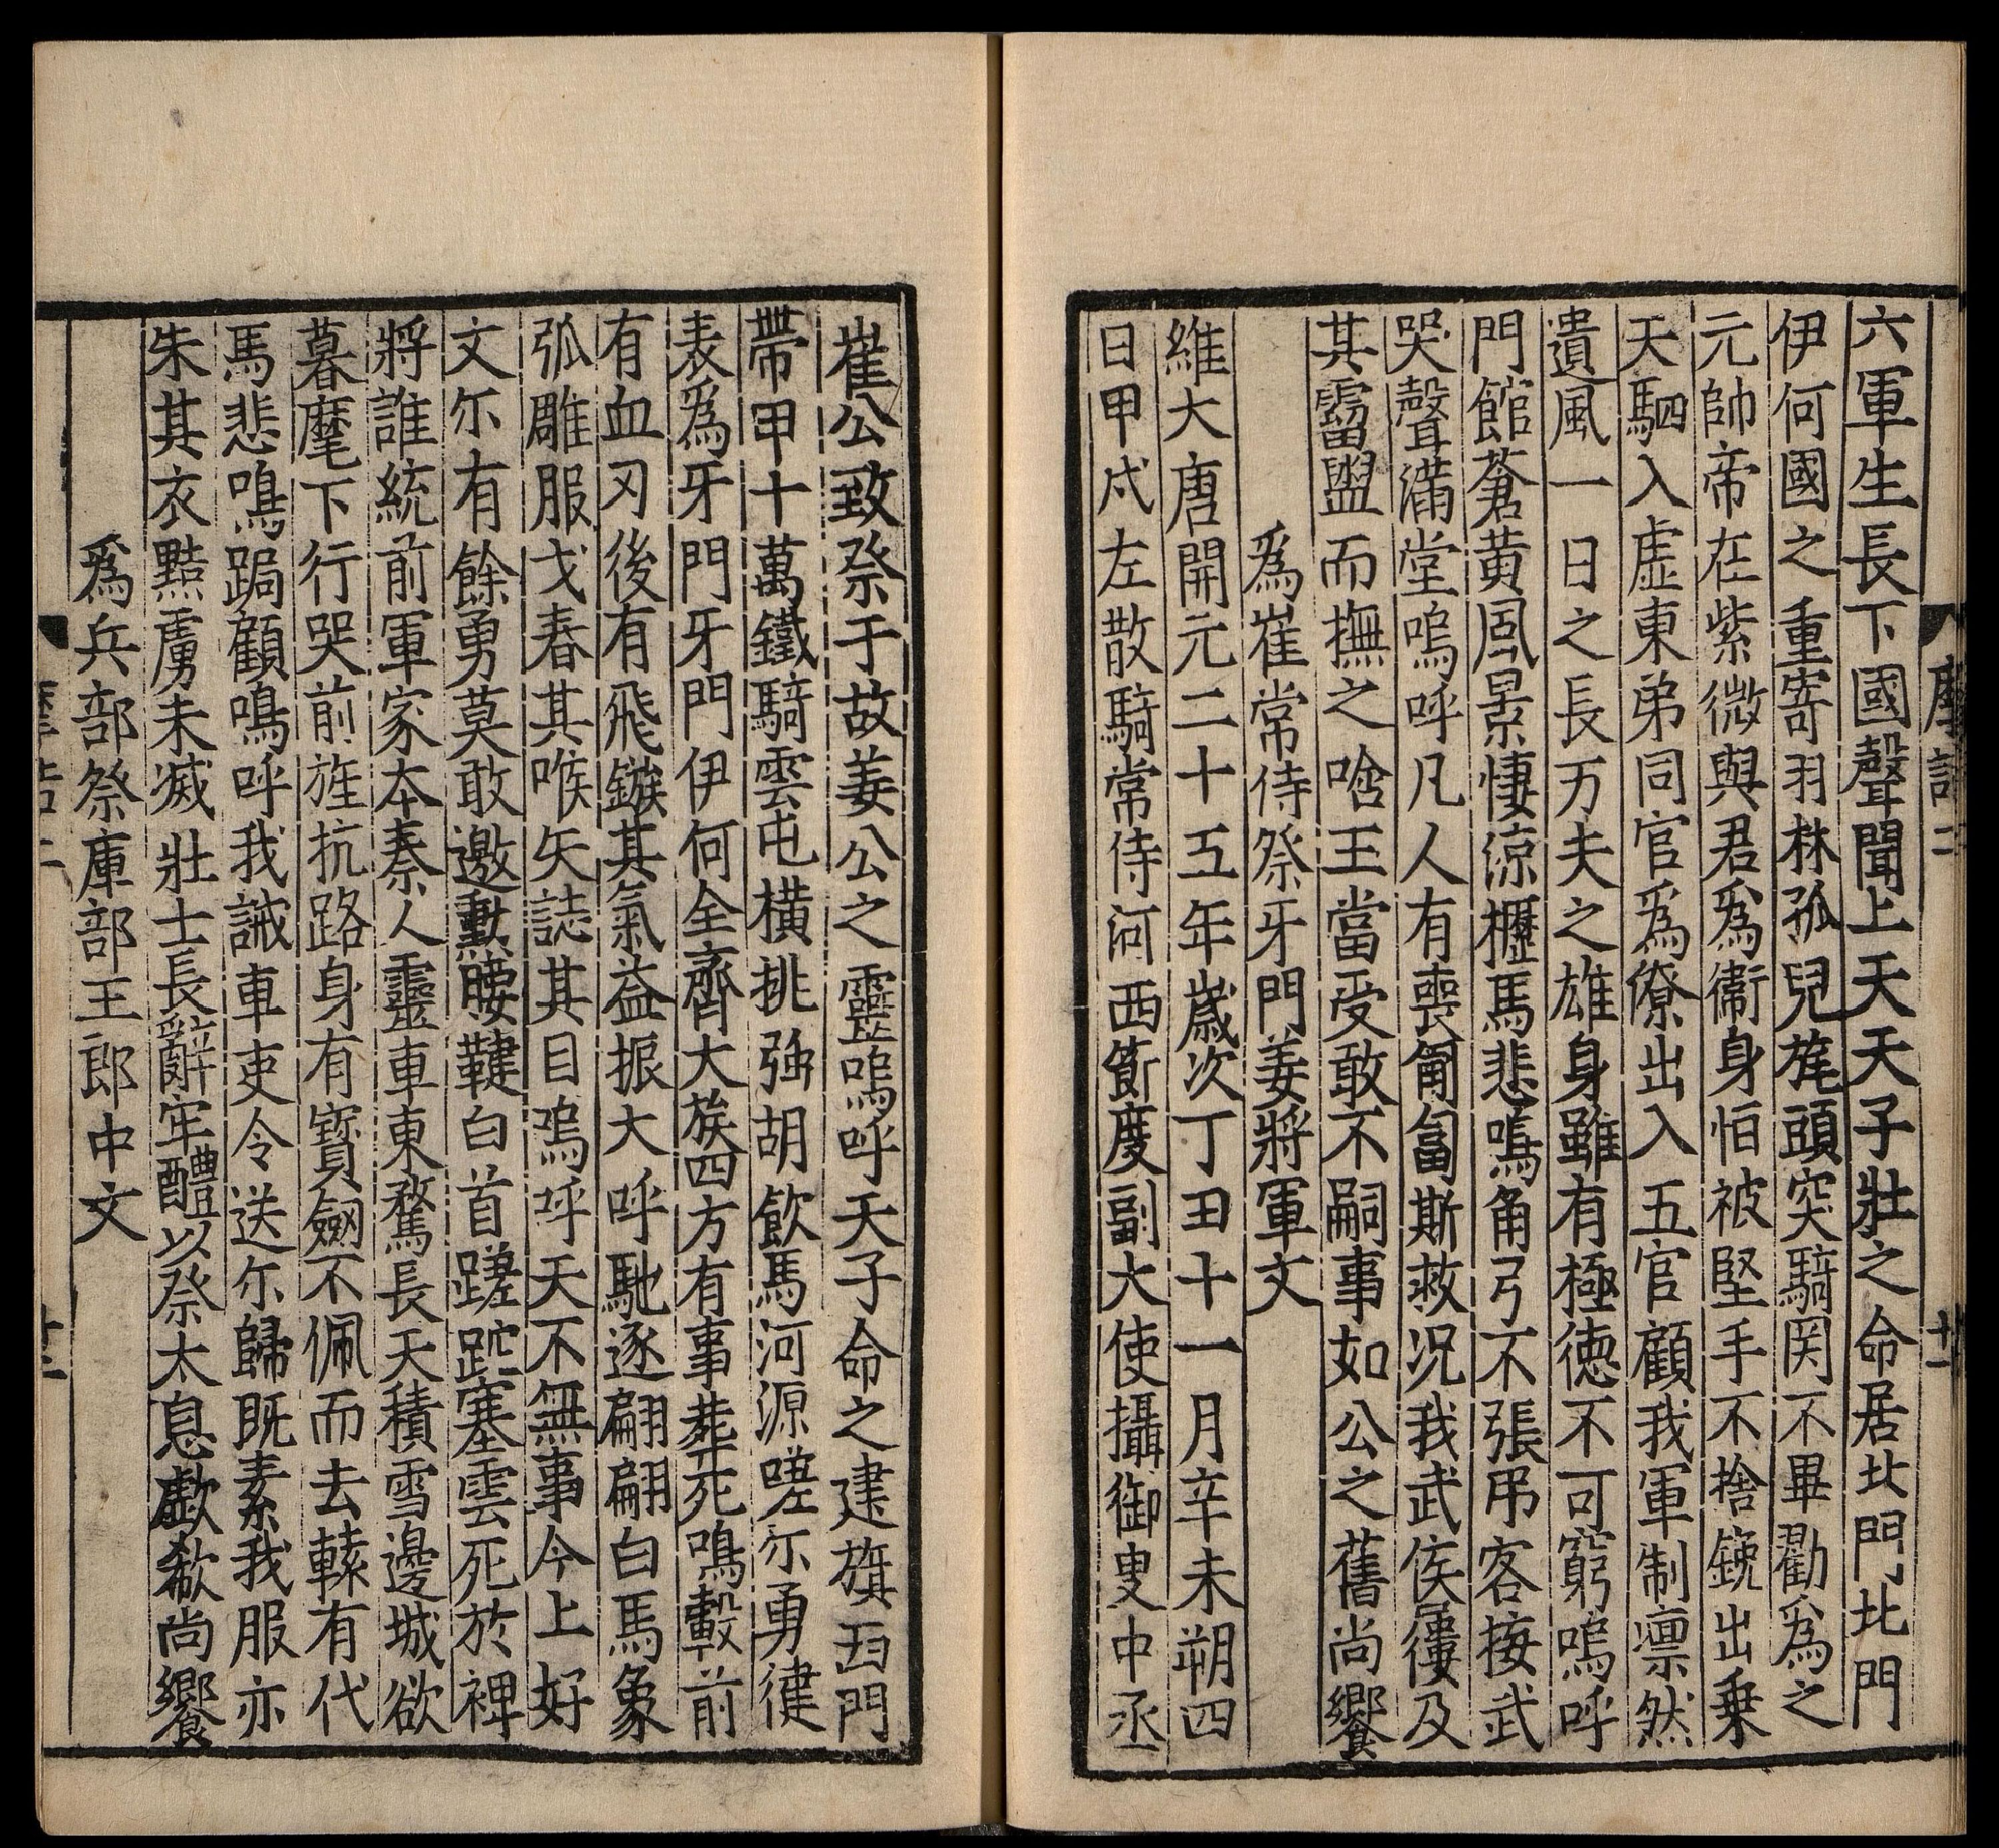 六軍生長下國聲聞上天天子壯之命居北門北門
伊何國之重寄羽林孤兒旄頭突騎罔不畢勸爲之
元帥帝在紫微與君爲衞身怕被堅手不捨鋭出乗
天駟入虚東弟同官爲僚出入五官顧我軍制凛然
遺風一日之長万夫之雄身雖有極徳不可窮嗚呼
門館蒼黄風景悽涼櫪馬悲鳴角弓不張吊客接武
哭聲滿堂嗚呼凡人有喪匍匐斯救况我武侯屢及
其霤盥而撫之啥王當受敢不嗣事如公之舊尚饗
爲崔常侍祭牙門姜將軍文
維大唐開元二十五年歳次丁丑十一月辛未朔四
日甲戌左散騎常侍河西節度副大使攝御史中丞
崔公致祭于故姜公之靈嗚呼天子命之建旗玉門
帶甲十萬鐵騎雲屯橫挑強胡飲馬河源嗟尓勇健
表爲牙門牙門伊何全齊大族四方有事葬死鳴轂前
有血刃後有飛鏃其氣益振大呼馳逐翩翩白馬象
弧雕服戈舂其喉矢誌其目嗚呼天不無事今上好
文尓有餘勇莫敢邀勳腰鞬白首蹉跎塞雲死於裨
將誰統前軍家本秦人靈車東騖長天積雪邊城欲
暮麾下行哭前旌抗路身有寳劒不佩而去轅有代
馬悲鳴跼顧鳴呼我誡車吏令送尓歸既素我服亦
朱其衣黠虜未滅壯士長辭牢醴以祭太息歔欷尚饗
爲兵部祭庫部王郎中文